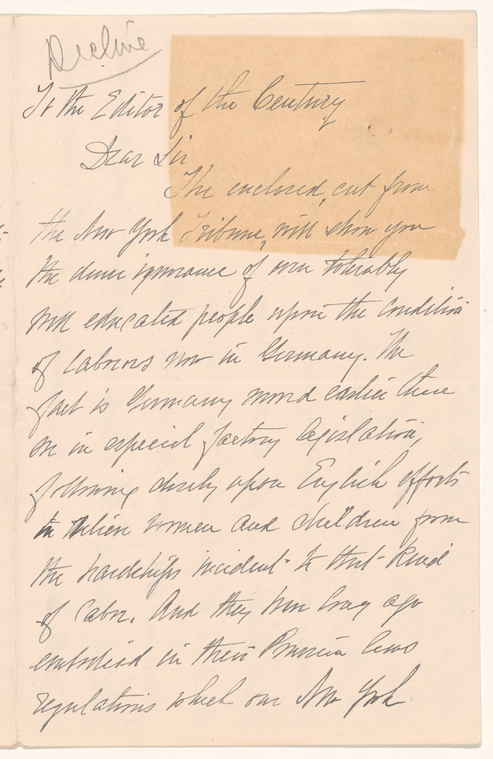 Decline
To the Editor of the Century
Dear Sir
The enclosed, cut from
the New York Tribune, will show you
the dense ignorance of even tolerably
well educated people upon the condition
of laborers now in Germany. The
fact is Germany moved earlier than
we in especial factory legislation,
following closely upon English efforts
to relieve women and children from
the hardships incident to that kind
of labor. And they have long ago
embodied in their Prussian laws
regulations which our New York